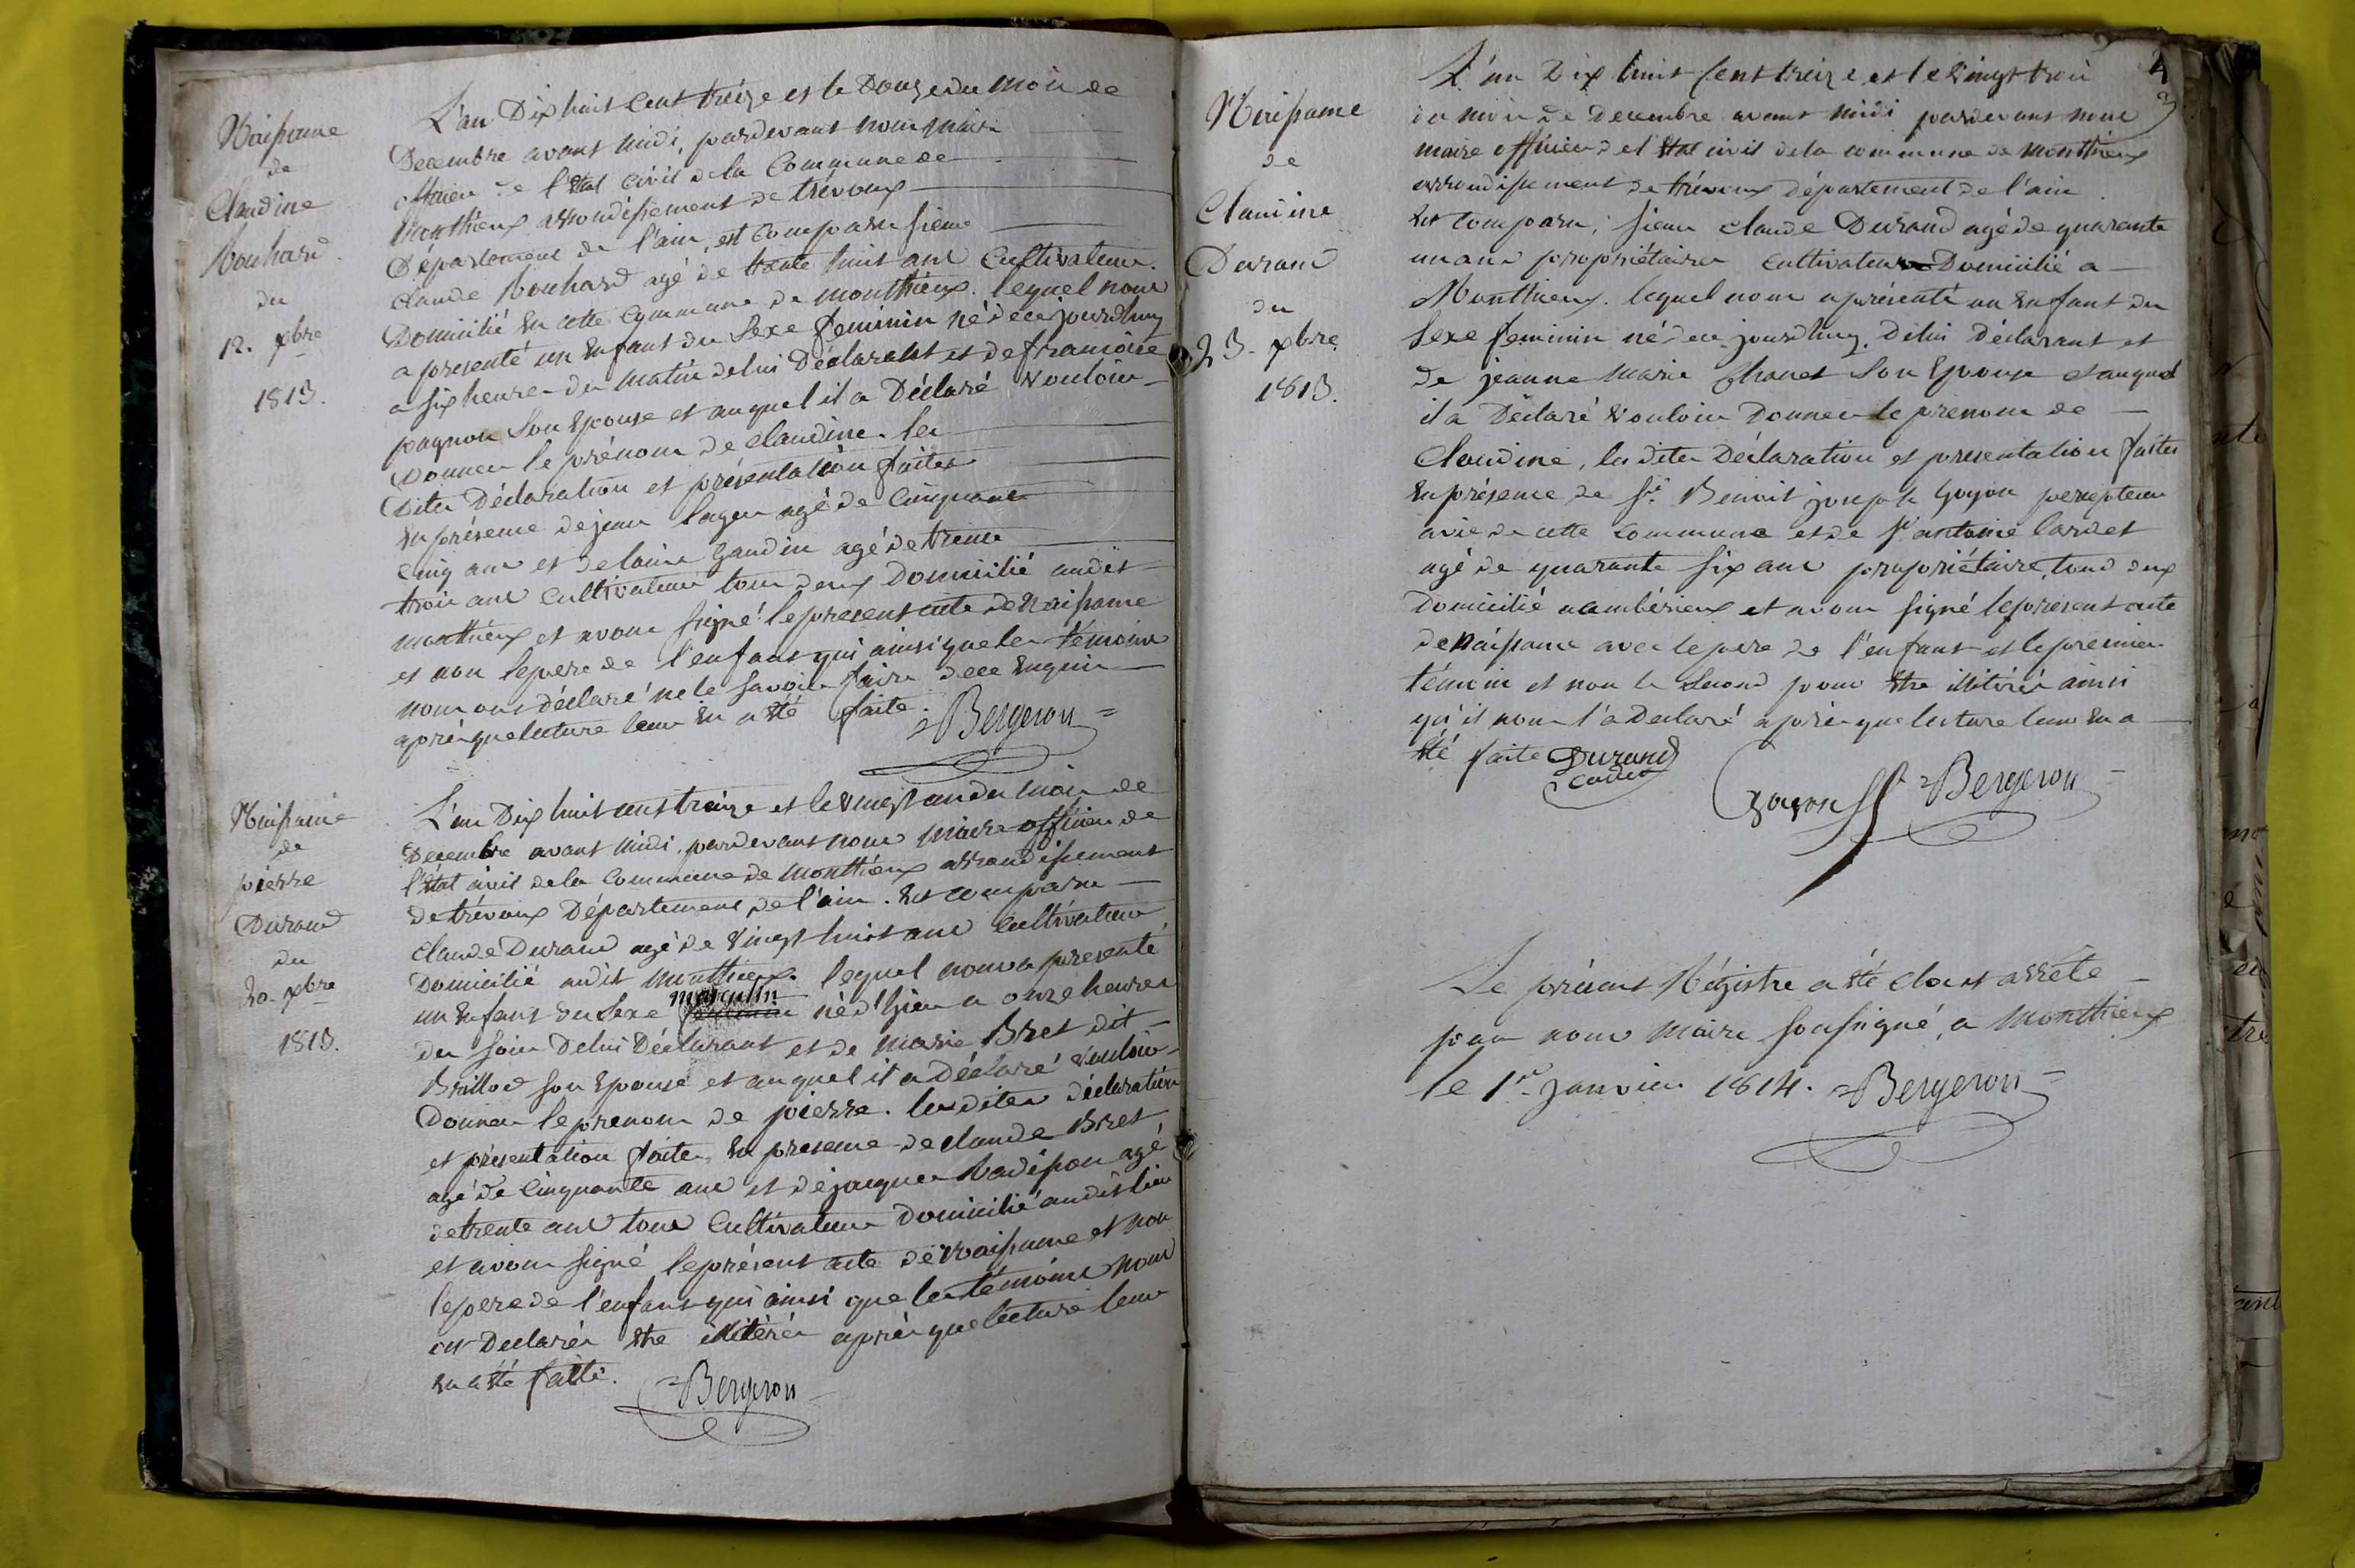 Naissance
de
Claudine
Bouhard
du
12. xbre
1813.
L'an Dix huit Cent treize et le Douze du mois de
Decembre avant midi, pardevant nous maire
officier de l'état Civil de la Commune de
Monthieux arrondissement de trévoux
Département de l'ain, est Comparu sieur
Claude Bouhard agé de trente huit ans Cultivateur.
Domicilié En cette Commune de monthieux. lequel nous
a presenté un Enfant du Sexe feminin né de ce jourdhuy
a six heures du matin de lui Déclarant et de francoise
pagnon Son Epouse et auquel il a Déclaré Vouloir
Donner le prénom de Claudine. les
Dites Déclaration et présentation faites
En présence de jean lager agé de Cinquante
Cinq ans et de Gaudin agé de trente
trois ans Cultivateurs tous deux Domicilié audit
monthieux et avons signé le present acte de Naissance
et non le pere de l'enfant qui ainsi que les témoins
nous ont déclaré ne le savoir faire de ce Enquis
après que lecture leur En a été faite.
Bergeron
Naissance
de
pierre
Durand
du
20. xbre
1813.
L'an Dix huit cent treize et le Vingt un du mois de
Decembre avant midi, pardevant nous Maire officier de
l'état civil de la Commune de Monthieux arrondissement
de trévoux Département de l'ain. Est comparu
Claude Durand agé de Vingt huit ans Cultivateur
Domicilié audit Monthieux. lequel nous a presenté
un Enfant du Sexe masculin né d'hier a onze heures
du soir De lui Déclarant et de marie Bret dit
Brillod son Epouse et auquel il a Déclaré Vouloir
Donner le prenom de pierre. les dites déclaration
et présentation faites En presence de claude Bret
agé de Cinquante ans et de jacques Badisson agé
de trente ans tous Cultivateurs Domicilié audit lieu
et avons signé le présent acte de Naissance et non
le pere de l'enfant qui ainsi que les témoins nous
ont Declarés être illitérés après que lecture leur
En a été faite.
Bergeron
4
Naissance
de
Claudine
Durand
du
23. xbre
1813.
L'an Dix huit Cent treize et le Vingt trois
du mois de Decembre avant midi pardevant nous
maire officier de l'état civil de la commune de Monthieux
arrondissement de trévoux département de l'ain
Est comparu, sieur Claude Durand agé de quarante
un ans propriétaire cultivateur Domicilié a
Monthieux. lequel nous a présenté un Enfant du
Sexe feminin né de ce jourdhuy. De lui Déclarant et
de jeanne marie Chanet Son Epouse et auquel
il a Déclaré Vouloir Donner le prenom de
Claudine, les dites Déclaration et presentation faites
En présence de Sr. Benoit joseph Goyon percepteur
de cette Commune et de Sr antoine lardet
agé de quarante six ans propriétaire, tous deux
Domicilié a ambérieux et avons signé le present acte
de Naissance avec le pere de l'enfant et le premier
témoin et non le Second pour être illitérés ainsi
qu'il nous l'a Declaré après que lecture leur En a
été faite Durand
cadet
Goyon Bergeron
Le présent Régistre a été Clos et arrété
par nous Maire soussigné, a Monthieux
le 1er. janvier 1814. Bergeron